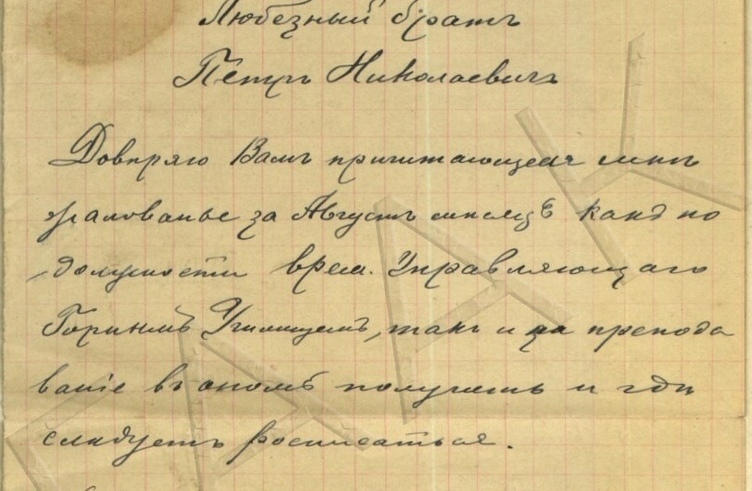 Любезный братъ
Петръ Николаевичъ
Довѣряю Вамъ причитающееся мнѣ
жалованье за Августъ мѣсяцъ какъ по
должности врем. Управляющаго
Горнымъ Училищемъ, такъ и за препода
ваніе въ ономъ получить и гдѣ
слѣдуетъ росписаться.